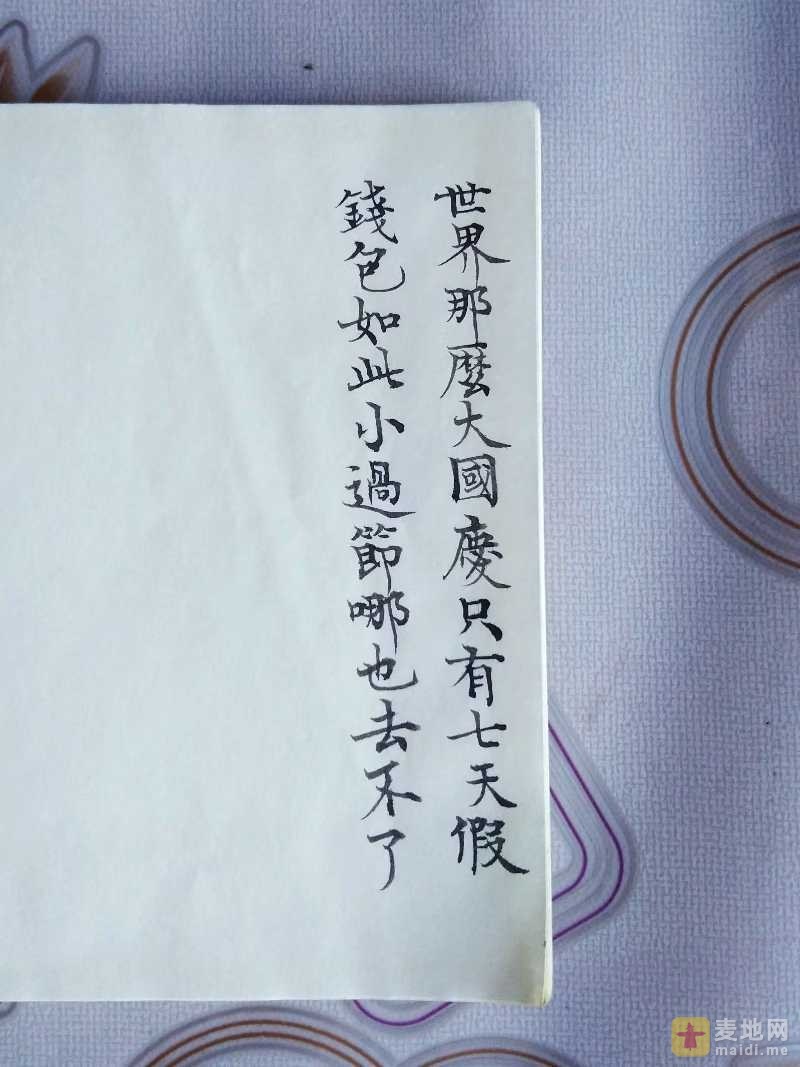 世界那麼大國慶只有七天假
錢包如此小過節哪也去不了
麦地网
maidi.me